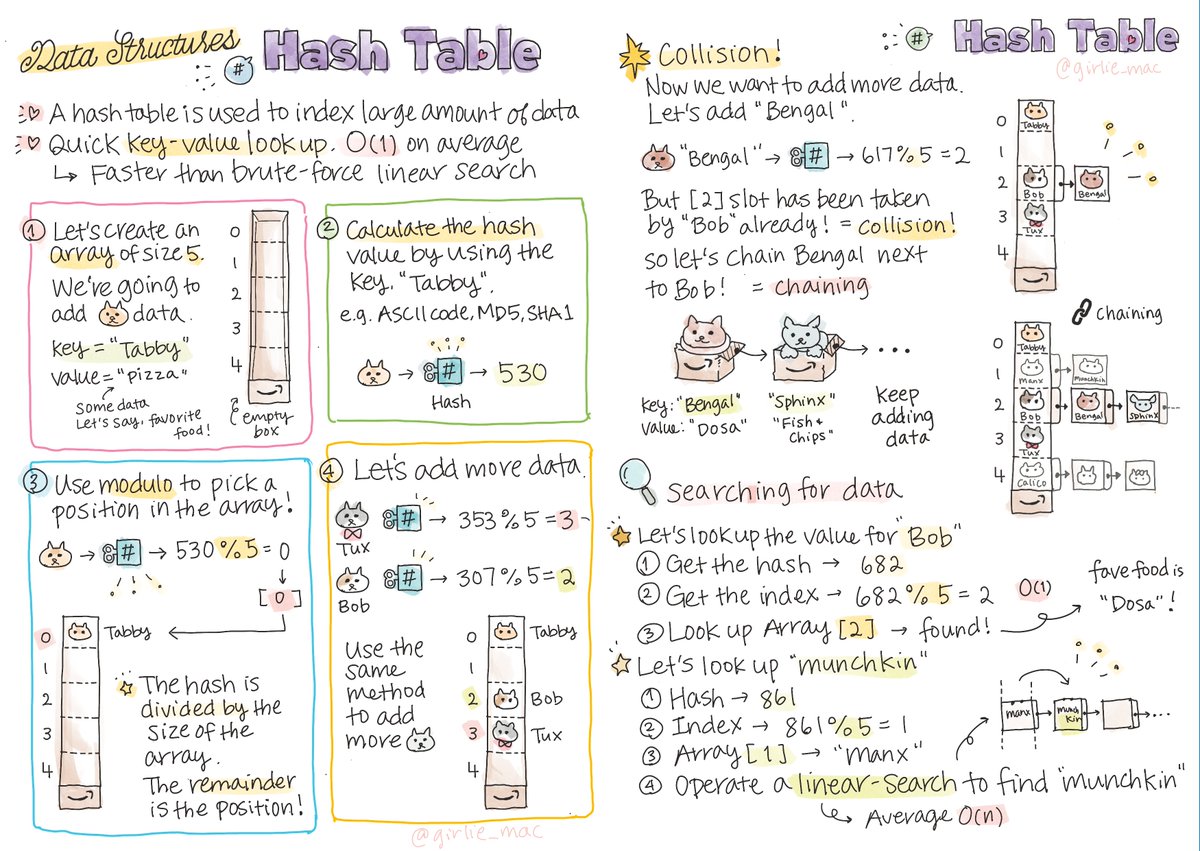 Data Structures
Hash Table
#
A hash table is used to index large amount of data
Quick key-value look up. O(1) on average
↳ Faster than brute-force linear search
① Let's create an
array of size 5.
We're going to
add data.
key = "Tabby"
value = "pizza"
some data
Let's say, favorite
food!
0
1
2
3
4
empty
box
② Calculate the hash
value by using the
key, "Tabby".
e.g. ASCII code, MD5, SHA1
→ # → 530
Hash
③ Use modulo to pick a
position in the array!
→ # → 530 % 5 = 0
[0]
0 Tabby
1
2
3
4
The hash is
divided by the
size of the
array.
The remainder
is the position!
④ Let's add more data.
# → 353 % 5 = 3
Tux
# → 307 % 5 = 2
Bob
Use the
same
method
to add
more
0 Tabby
1
2 Bob
3 Tux
4
@girlie_mac
#
Hash Table
@girlie_mac
Collision!
Now we want to add more data.
Let's add "Bengal".
"Bengal" → # → 617 % 5 = 2
But [2] slot has been taken
by "Bob" already! = collision!
so let's chain Bengal next
to Bob! = chaining
0 Tabby
1
2 Bob Bengal
3 Tux
4
key: "Bengal"
value: "Dosa"
"Sphinx"
"Fish &
Chips"
...
keep
adding
data
chaining
0 Tabby
1 Manx Munchkin
2 Bob Bengal Sphinx
3 Tux
4 Calico
Searching for data
Let's look up the value for "Bob"
① Get the hash → 682
② Get the index → 682 % 5 = 2 O(1)
③ Look up Array [2] → found!
fave food is
"Dosa"!
Let's look up "munchkin"
① Hash → 861
② Index → 861 % 5 = 1
③ Array [1] → "Manx"
④ Operate a linear-search to find "munchkin"
↳ Average O(n)
manx
munch
kin
...